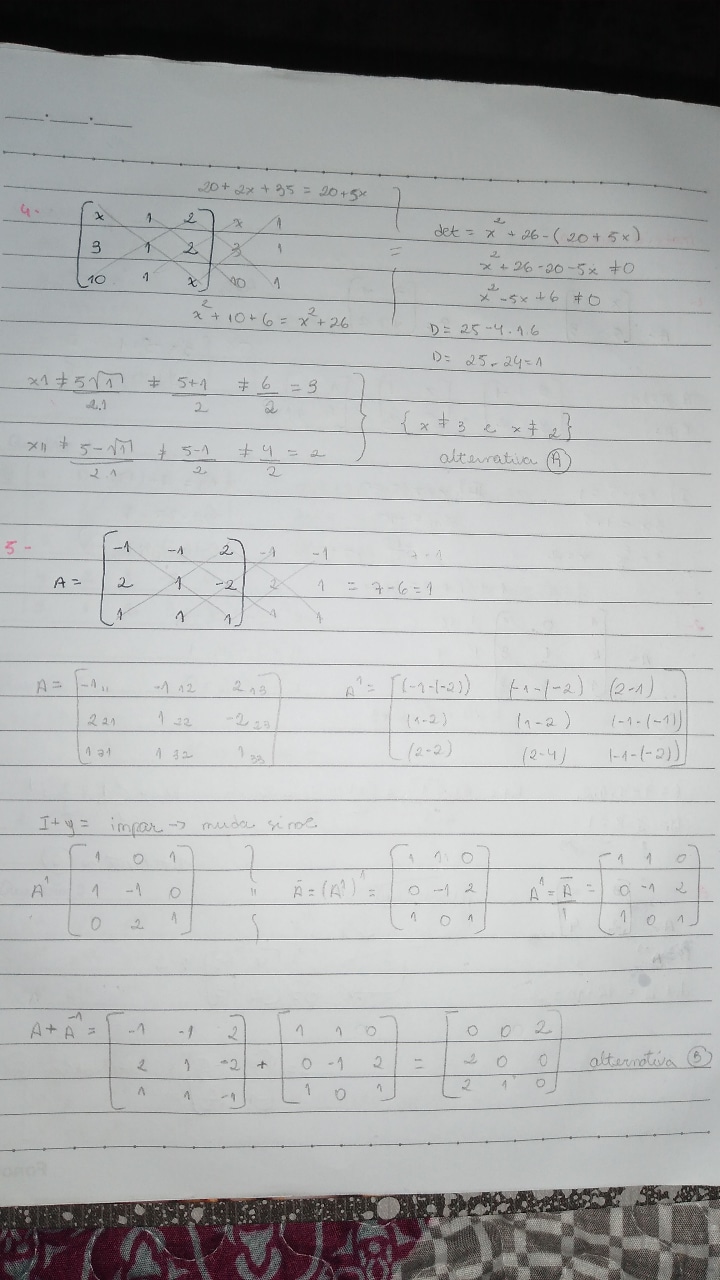 20 + 2x + 35 = 20+5x
4-
x 1 2 x 1
3 1 2 3 1
10 1 x 10 1
=
x² + 10 + 6 = x² + 26
det = x² + 26 - (20 + 5x)
x² + 26 - 20 - 5x ≠ 0
x² - 5x + 6 ≠ 0
D = 25 - 4.1.6
D = 25 - 24 = 1
x1 ≠ 5√1 / 2.1 ≠ 5+1 / 2 ≠ 6 / 2 = 3
x11 ≠ 5-√1 / 2.1 ≠ 5-1 / 2 ≠ 4 / 2 = 2
{x ≠ 3 e x ≠ 2}
alternativa A
5 -
A =
-1 -1 2 -1 -1
2 1 -2 2 1 = 7-6=1
1 1 1 1 1
A = -1 11 -1 12 2 13
2 21 1 22 -2 23
1 31 1 32 1 33
A¹ = (-1-(-2)) (-1-(-2) (2-1)
(1-2) (1-2) (-1-(-1))
(2-2) (2-4) (-1-(-2))
I+y = impar → muda sinal
A¹
1 0 1
1 -1 0
0 2 1
Ā = (A¹) =
1 1 0
0 -1 2
1 0 1
A¹ = Ā / 1 =
1 1 0
0 -1 2
1 0 1
A + A⁻¹ =
-1 -1 2
2 1 -2
1 1 -1
+
1 1 0
0 -1 2
1 0 1
=
0 0 2
2 0 0
2 1 0
alternativa B